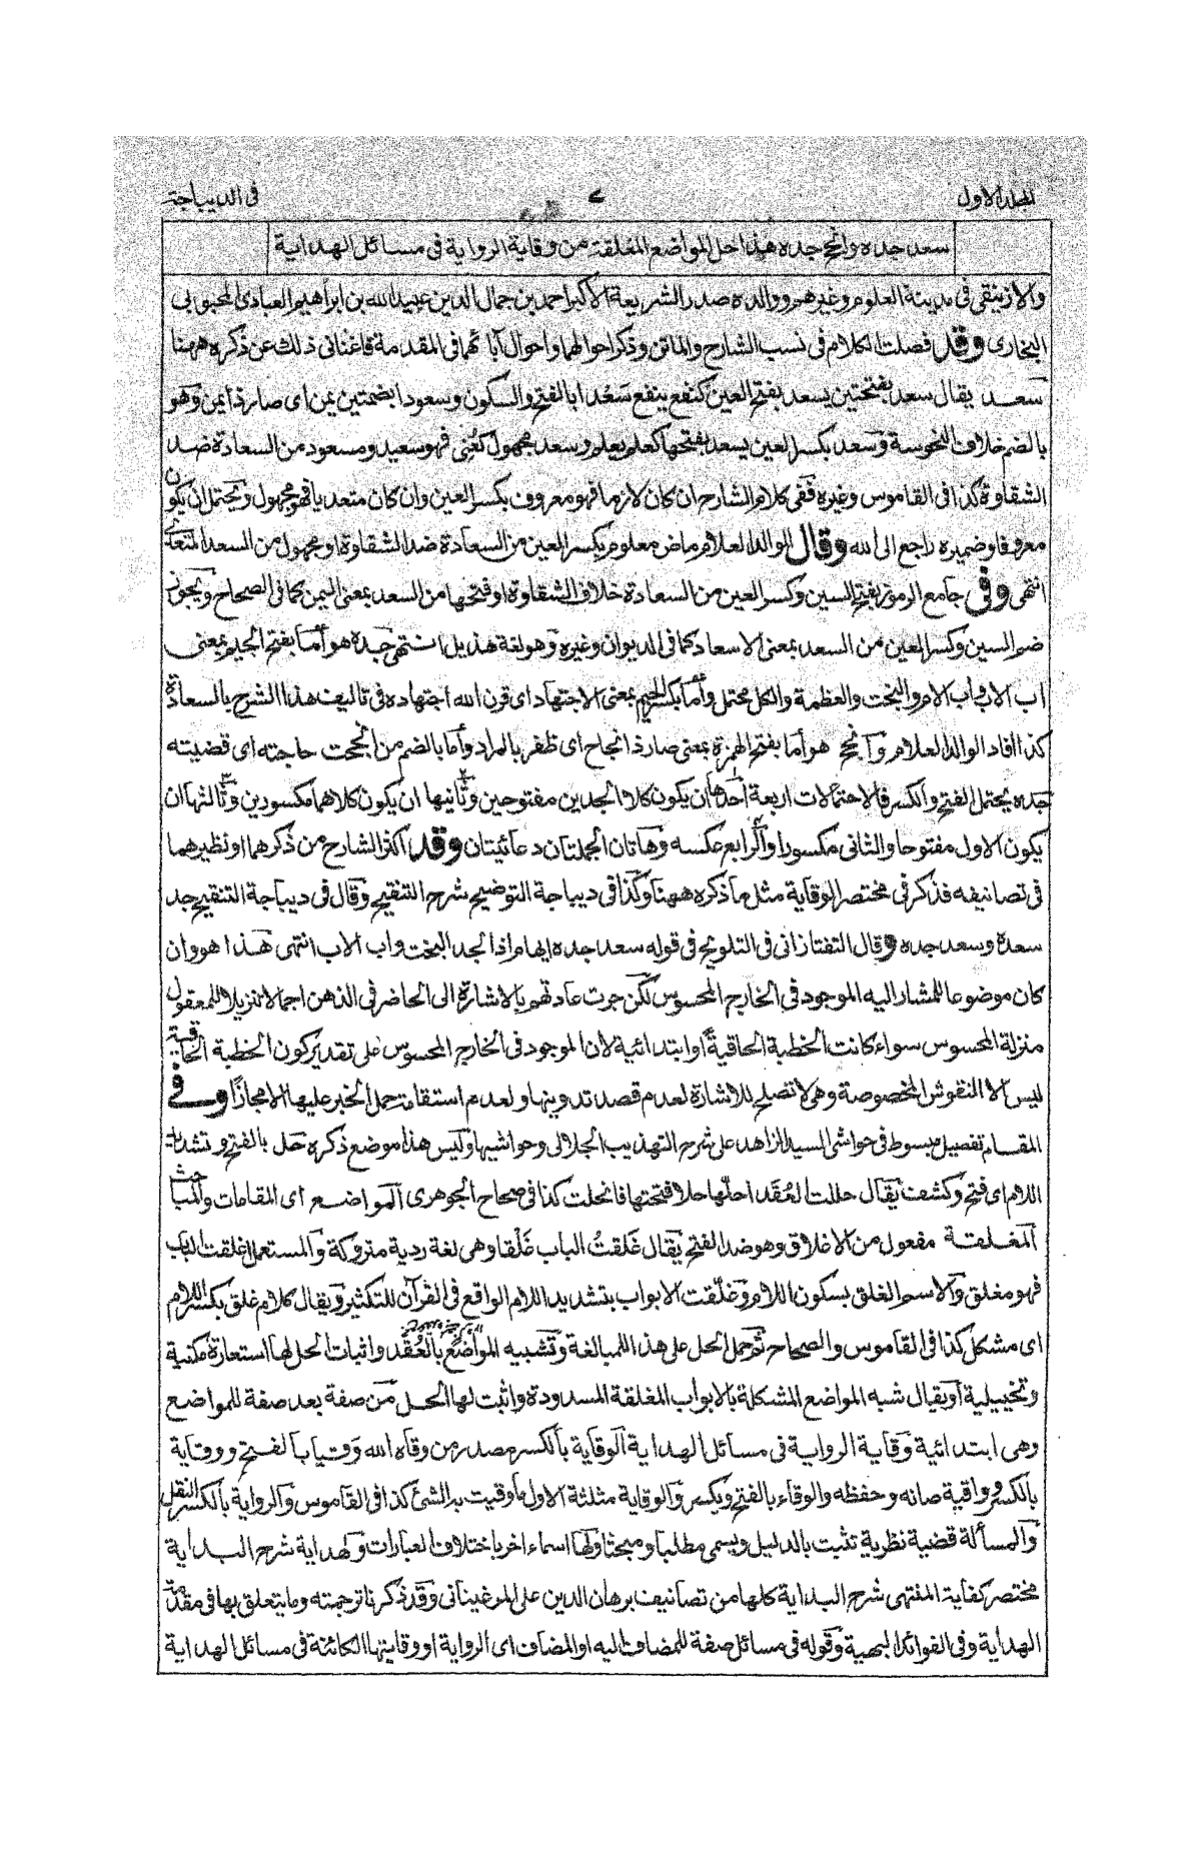 المجلد الاول ٧ فى الديباجة
سعد جده وانجح جده هذا حل المواضع المغلقة من وقاية الرواية فى مسائل الهداية
والازنيقى فى مدينة العلوم وغيرهم ووالده صدر الشريعة الاكبر احمد بن جمال الدين عبيد الله بن ابراهيم العبادى المحبوبى
البخارى وقد فصلت الكلام فى نسب الشارح والماتن وذكر احوالهما واحوال آبائهما فى المقدمة فاغنانى ذلك عن ذكره ههنا
سعد يقال سعد بفتحتين يسعد بفتح العين كنفع ينفع سَعْدا بالفتح والسكون وسعودا بضمتين يمن اى صار ذا يمن وهو
بالضم خلاف النحوسة وسعد بكسر العين يسعد بفتحها كعلم يعلم وسعد مجهول كعُنِى فهو سعيد ومسعود من السعادة ضد
الشقاوة كذا فى القاموس وغيره ففى كلام الشارح ان كان لازما فهو معروف بكسر العين وان كان متعديا فهو مجهول ويحتمل ان يكون
معروفا وضميره راجع الى الله وقال الوالد العلام ماض معلوم بكسر العين من السعادة ضد الشقاوة او مجهول من السعد المتعدى
انتهى وفى جامع الرموز بفتح السين وكسر العين من السعادة خلاف الشقاوة او فتحها من السعد بمعنى اليمن كما فى الصحاح ويجوز
ضم السين وكسر العين من السعد بمعنى الاسعاد كما فى الديوان وغيره وهو لغة هذيل انتهى جده هو اما بفتح الجيم بمعنى
اب الاب واب الام والبخت والعظمة والكل محتمل واما بكسر الجيم بمعنى الاجتهاد اى قرن الله اجتهاده فى تاليف هذا الشرح بالسعادة
كذا افاد الوالد العلام وانجح هو اما بفتح الهمزة بمعنى صار ذا انجاح اى ظفر بالمراد واما بالضم من انجحت حاجته اى قضيته
جده يحتمل الفتح والكسر فالاحتمالات اربعة احدها ان يكون كلا الجدين مفتوحين وثانيها ان يكون كلاهما مكسورين وثالثها ان
يكون الاول مفتوحا والثانى مكسورا والرابع عكسه وهاتان الجملتان دعائيتان وقد اكثر الشارح من ذكرهما او نظيرهما
فى تصانيفه فذكر فى مختصر الوقاية مثل ما ذكره ههنا وكذا فى ديباجة التوضيح شرح التنقيح وقال فى ديباجة التنقيح جد
سعده وسعد جده وقال التفتازانى فى التلويح فى قوله سعد جده ايهام اذ الجد البخت واب الاب انتهى هذا هو وان
كان موضوعا للمشار اليه الموجود فى الخارج المحسوس لكن جرت عادتهم بالاشارة الى الحاضر فى الذهن اجمالا تنزيلا للمعقول
منزلة المحسوس سواء كانت الخطبة الحاقية او ابتدائية لان الموجود فى الخارج المحسوس على تقدير كون الخطبة الحاقية
ليس الا النقوش المخصوصة وهى لا تصلح للاشارة لعدم قصد تدوينها ولعدم استقامة حمل الخبر عليها الا مجازًا وفى
المقام تفصيل مبسوط فى حواشى السيد الزاهد على شرح التهذيب الجلالى وحواشيها وليس هذا موضع ذكره حل بالفتح وتشديد
اللام اى فتح وكشف يقال حللت العُقَد احلّها حلا فتحتها فانحلت كذا فى صحاح الجوهرى المواضع اى المقامات والمباحث
المغلقة مفعول من الاغلاق وهو ضد الفتح يقال غَلقتُ الباب غَلْقا وهى لغة ردية متروكة والمستعمل اغلقت الباب
فهو مغلق والاسم الغلق بسكون اللام وغلّقت الابواب بتشديد اللام الواقع فى القرآن للتكثير ويقال كلام غلق بكسر اللام
اى مشكل كذا فى القاموس والصحاح ثم حمل الحل على هذا للمبالغة وتشبيه المواضع بالعُقَد واثبات الحل لها استعارة مكنية
وتخييلية او يقال شبه المواضع المشكلة بالابواب المغلقة المسدودة واثبت لها الحل من صفة بعد صفة للمواضع
وهى ابتدائية وقاية الرواية فى مسائل الهداية الوقاية بالكسر مصدر من وقاه الله وَقيا بالفتح ووقاية
بالكسر وواقية صانه وحفظه والوقاء بالفتح ويكسر والوقاية مثلثة الاول ما وقيت به الشئ كذا فى القاموس والرواية بالكسر النقل
والمسألة قضية نظرية تثبت بالدليل ويسمى مطلبا ومبحثا ولها اسماء اخر باختلاف العبارات والهداية شرح البداية
مختصر كفاية المنتهى شرح البداية كلها من تصانيف برهان الدين على المرغينانى وقد ذكرنا ترجمته وما يتعلق بها فى مقدمة
الهداية وفى الفوائد البهية وقوله فى مسائل صفة للمضاف اليه او المضاف اى الرواية او وقايتها الكائنة فى مسائل الهداية